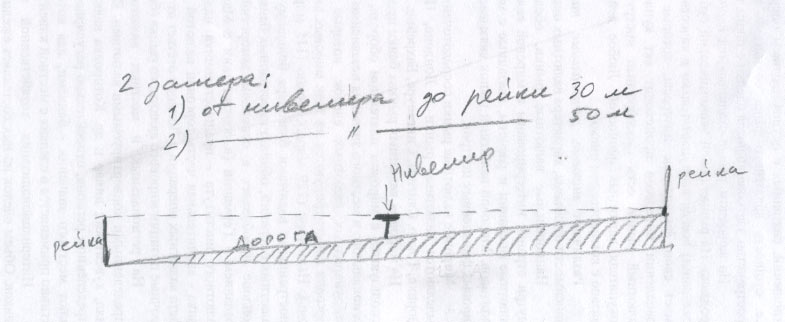 2 замера:
1) от нивелира до рейки 30 м
2) ——— " ——— 50 м
Нивелир
рейка
рейка
ДОРОГА